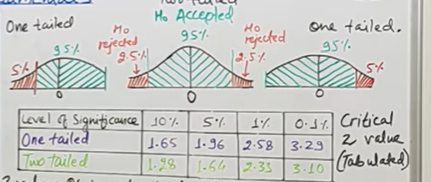 One tailed
Ho Accepted
Ho rejected
95%
Ho rejected
One tailed.
5%
95%
2.5%
2.5%
95%
5%
0
0
0
Level of Significance 10% 5% 1% 0.1%
One tailed 1.65 1.96 2.58 3.29
Two tailed 1.28 1.64 2.33 3.10
Critical
z value
(Tabulated)